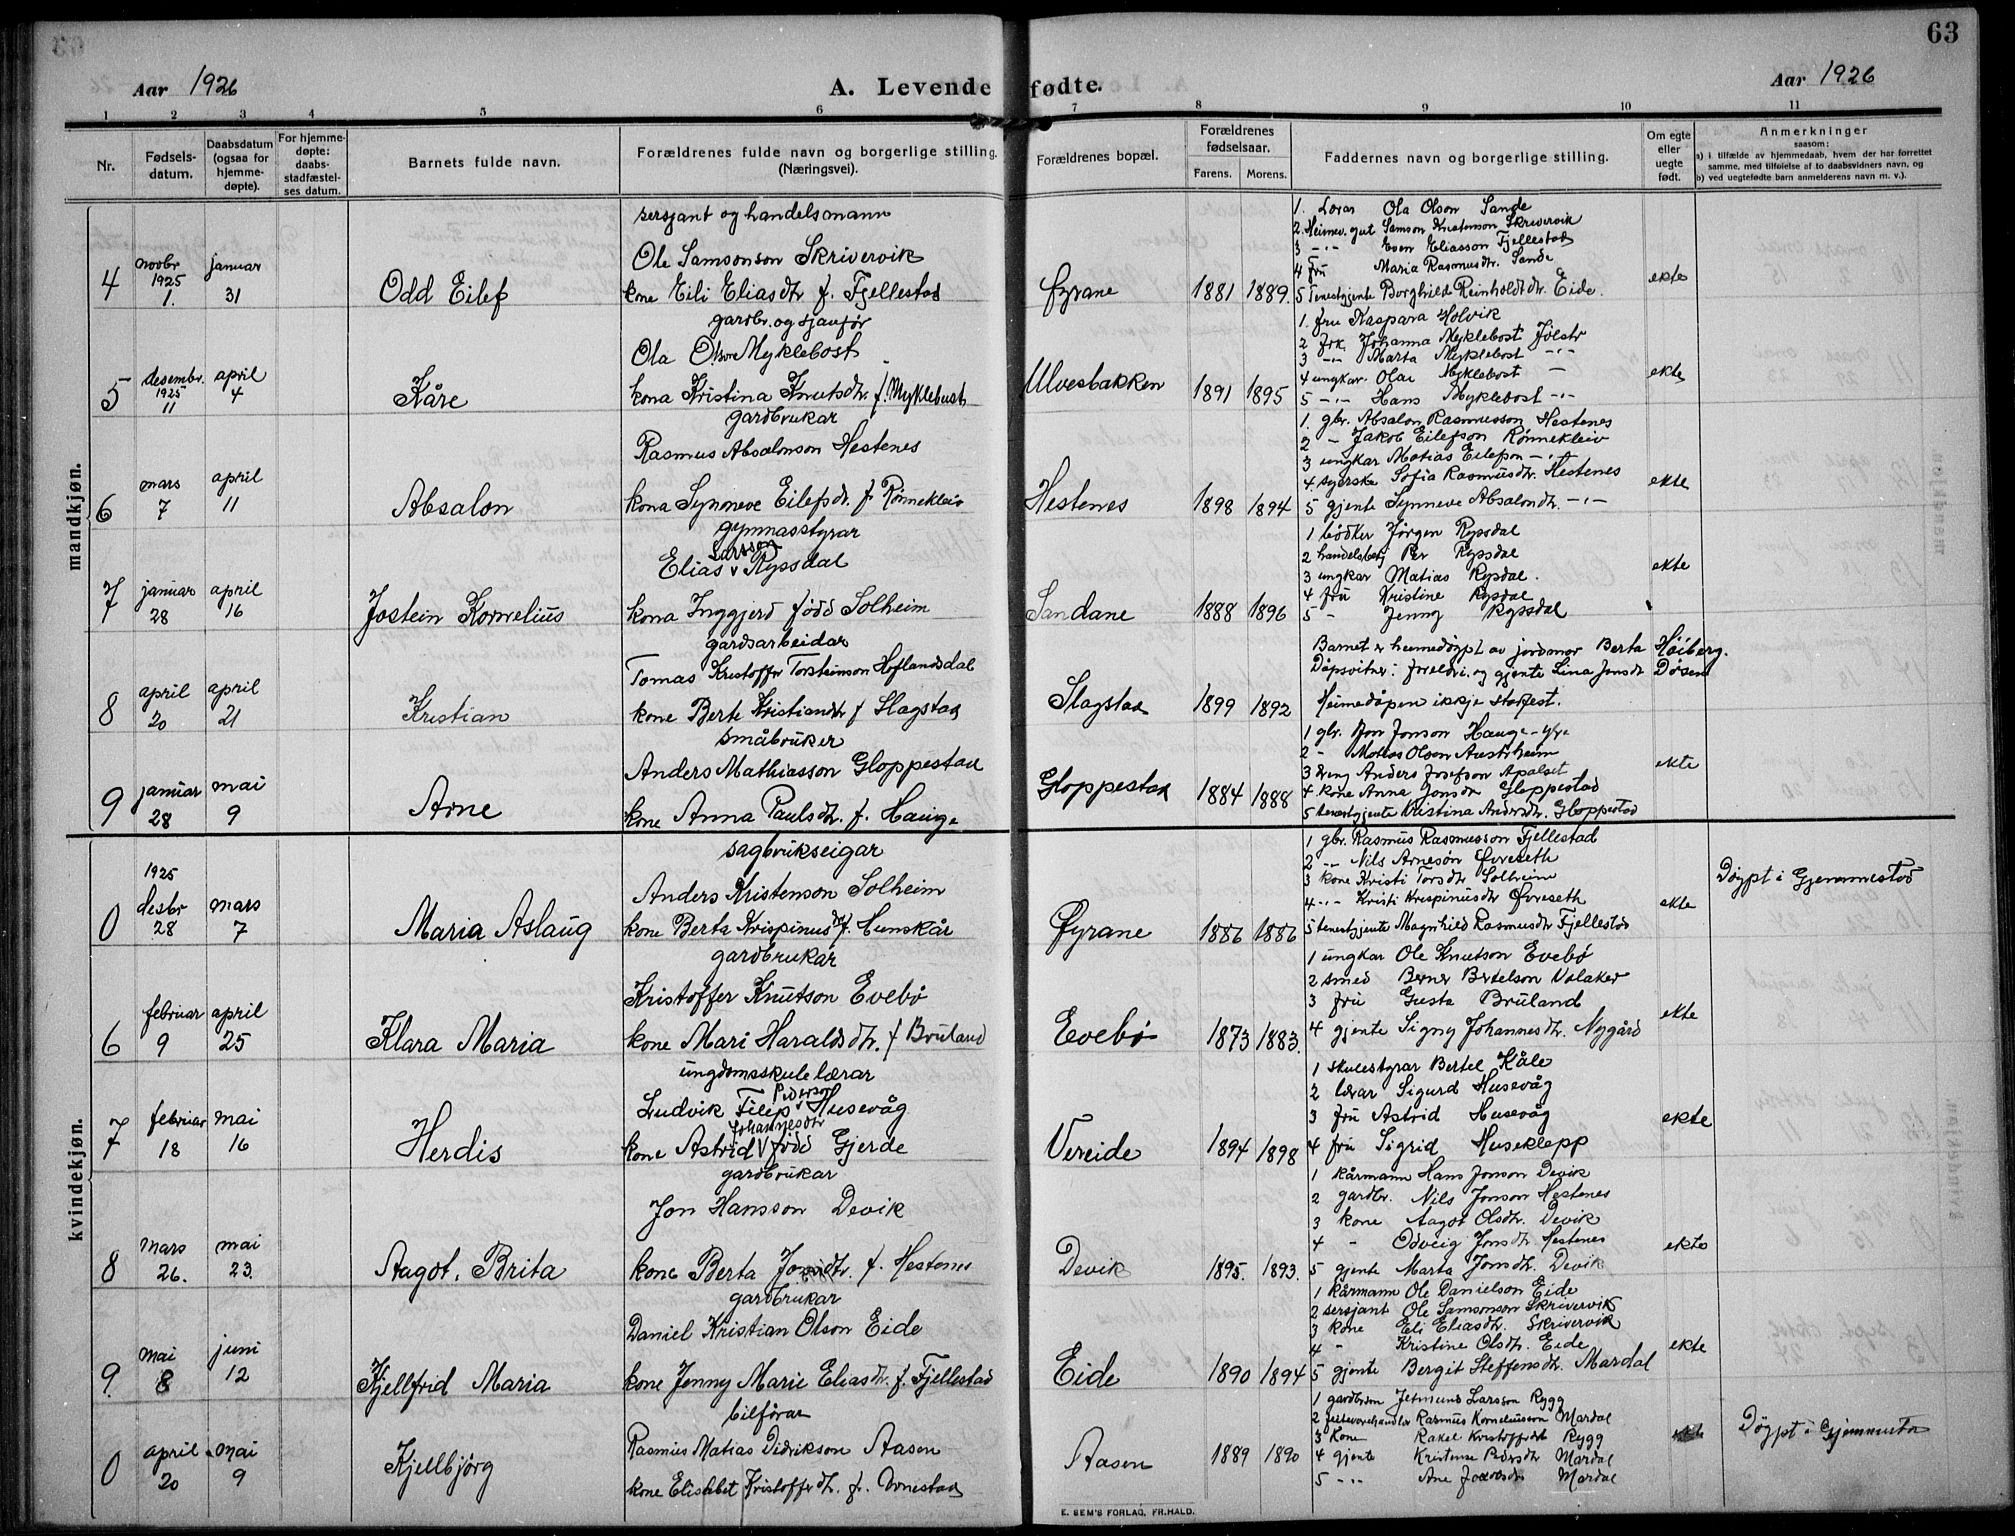 63
Aar 1926
A. Levende fødte.
Aar 1926
1 2 3 4 5 6 7 8 9 10 11
Nr.
Fødsels-
datum.
Daabsdatum
(ogsaa for
hjemme-
døpte).
For hjemme-
døpte:
daabs-
stadfæstel-
ses datum.
Barnets fulde navn.
Forældrenes fulde navn og borgerlige stilling.
(Næringsvei).
Forældrenes bopæl.
Forældrenes
fødselsaar.
Farens. Morens.
Faddernes navn og borgerlige stilling.
Om egte
eller
uegte
født.
Anmerkninger
saasom:
a) i tilfælde av hjemmedaab, hvem der har forrettet
samme, med tilføielse af to daabsvidners navn, og
b) ved uegtefødte barn anmelderens navn m. v.).
mandkjøn.
4
novbr
1925
1.
januar
31
Odd Eilef
sersjant og handelsmann
Ole Samsonson Skrivervik
kone Eili Eliasdtr f. Fjellestad
Øyrane
1881 1889.
1. Lærar Ola Olson Sande
2. Heimev. gut Samson Kristenson Skrivervik
3 -"- Even Eliasson Fjellestad
4 Fru Maria Rasmusdtr. Sande
5 Tenestgjente Borghild Reinholdtdtr. Eide.
ekte
5
desembr.
1925
11
april
4
Kåre
gardbr. og sjauför
Ola Olson Myklebost
kona Kristina Knutsdtr. f. Myklebust
Ulvesbakken
1891 1895
1. fru Kaspara Holvik
2 frk. Johanna Myklebost Jølstr
3 -"- Marta Myklebost -"-
4 ungkar Olai Myklebost -
5 -"- Hans Myklebost -"-
ekte
6
mars
7
april
11
Absalon
gardbrukar
Rasmus Absalonson Hestenes
kona Synneve Eilefsdr. f. Rønnekleiv
Hestenes
1898 1894
1. gbr. Absalon Rasmusson Hestenes
2 - Jakob Eilefson Rønnekleiv
3 ungkar Matias Eilefson -"-
4. syerske Sofia Rasmusdtr. Hestenes
5 gjente Synneve Absalondtr. -"-
ekte
7
januar
28
april
16
Jostein Kornelius
gymnasstyrar
Larsson
Elias v Ryssdal
kona Inggjerd fødd Solheim
Sandane
1888 1896
1 bødker Jørgen Ryssdal
2 handelsbetj Per Ryssdal
3 ungkar Matias Rysdal.
4 fru Kristine Rysdal
5 - Jenny Ryssdal
ekte
8
april
20
april
21
Kristian
gardsarbeidar
Tomas Kristoffer Torsteinson Hoflandsdal
kone Berte Kristiandtr f Slagstad
Slagstad
1899 1892
Barnet er heimedøypt av jordmor Berta Høiberg.
Dåpsvitne: foreldri og gjente Lina Jonsdt Døsen
Heimedåpen ikkje stadfest.
9
januar
28
mai
9
Arne
småbruker
Anders Mathiasson Gloppestad
kone Anna Paulsdtr. f. Hauge
Gloppestad
1884 1888
1 gbr. Jon Jonson Hauge
2 - Matias Olson Austrheim
3 Dreng Anders Josefson Apalset
4 kone Anna Jonsdtr Gloppestad
5 tenestgjente Kristina Andersdtr. Gloppestad
ekte
kvindekjøn.
0
1925
desbr
28
mars
7
Maria Aslaug
sagbrukseigar
Anders Kristenson Solheim
kone Berta Krispinusd f. Hunskår
Øyrane
1886 1886
1 gbr. Rasmus Rasmusson Fjellestad
2 -"- Nils Arneson Øvreseth
3 kone Kristi Torsdtr Solheim
4 -"- Kristi Krispinusdtr Øvreseth
5 tenestgjente Magnhild Rasmusdtr Fjellestad
ekte
Døypt i Gjemmestad
6
februar
9
april
25
Klara Maria
gardbrukar
Kristoffer Knutson Evebø
kone Mari Haraldsdtr. f Bruland
Evebø
1873 1883.
1 ungkar Ole Knutson Evebø
2 smed Berner Bertelson Valaker
3 fru Gusta Bruland
4 gjente Signy Johannesdtr. Nygård
ekte
7
februar
18
mai
16
Herdis
ungdomsskulelærar
Pederson
Ludvik Filip v Husevåg
Johannesdtr
kone Astrid v fødd Gjerde
Vereide
1894 1898
1 skulestyrar Bertel Kåle
2 lærar Sigurd Husevåg
3 fru Astrid Husevåg
4 fru Sigrid Huseklepp
ekte
8
mars
26.
mai
23.
Aagot. Brita
gardbrukar
Jon Hansson Devik
kone Berta Jonsdtr. f. Hestenes
Devik
1895. 1893.
1 kårmann Hans Jonson Devik
2 gardbr. Nils Jonson Hestenes
3 kone Aagot Olsdtr. Devik
4 - Odveig Jonsdtr Hestenes
5 gjente Marta Jonsdtr. Devik
ekte
9.
mai
8
juni
12
Kjellfrid Maria
gardbrukar
Daniel Kristian Olson Eide
kone Jenny Marie Eliasdtr. f. Fjellestad
Eide
1890 1894
1 kårmann Ole Danielson Eide
2 sersjant Ole Samsonson Skrivervik
3 kone Eli Eliasdtr. Skrivervik
4 - Kristine Olsdtr. Eide
5 gjente Bergit Steffensdtr. Mardal
ekte
0
april
20
mai
9
Kjellbjörg
bilførar
Rasmus Matias Didrikson Aasen
kone Elisabet Kristofferdtr. f. Arnestad
Aasen
1889 1890
1 gardbrm Jetmund Larsson Rygg
2 Rasmus Korneliusson Mardal
3 Kone Rakel Kristofferdt Rygg
4 gjente Kristense Pedersdtr Mardal
5 -"- Ane Mardal
ekte
Døypt i Gjemmestad
E. SEM'S FORLAG, FR.HALD.